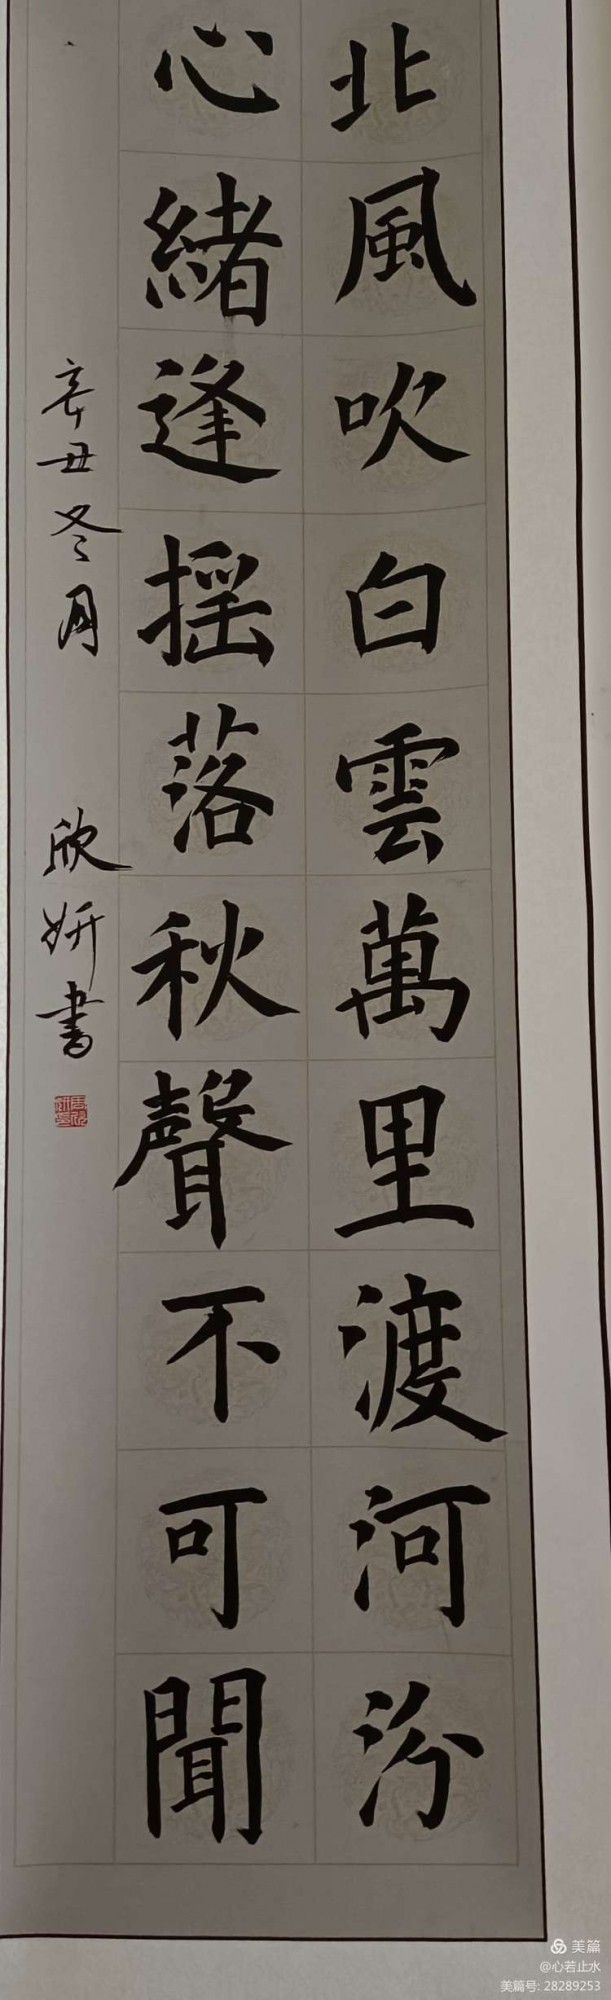 北風吹白雲萬里渡河汾
心緒逢摇落秋聲不可聞
辛丑冬月 欣妍書
美篇
@心若止水
美篇号: 28289253